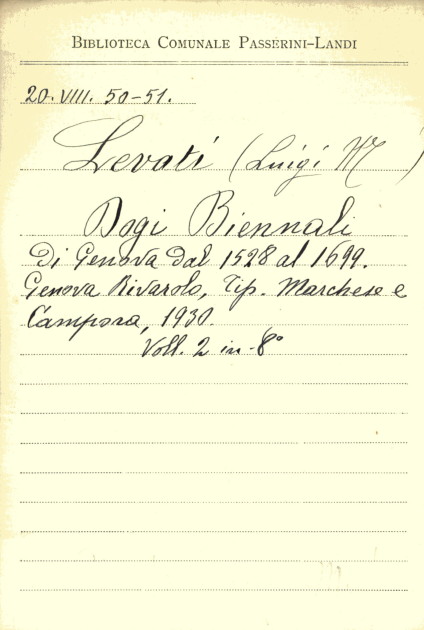 BIBLIOTECA COMUNALE PASSERINI-LANDI
20. VIII. 50-51.
Levati (Luigi M)
Dogi Biennali
di Genova dal 1528 al 1699.
Genova Rivarolo, Tip. Marchese e
Campora, 1930.
Voll. 2 in-8°